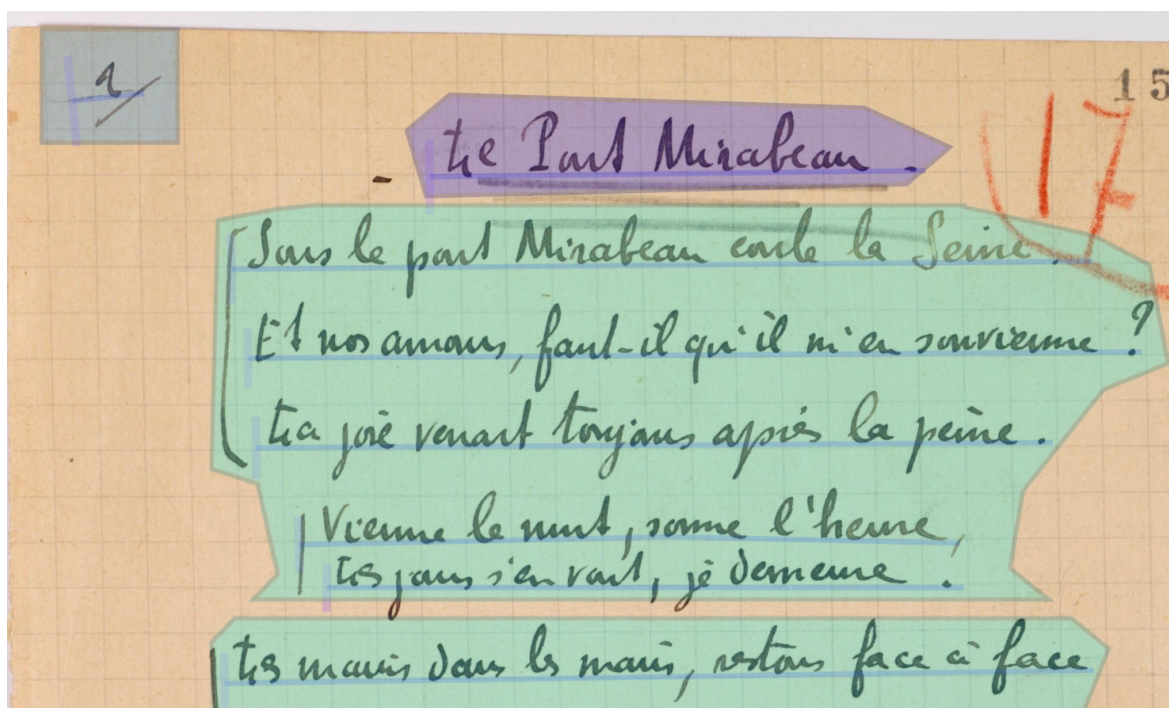 15
17
- Le Pont Mirabeau.
Sous le pont Mirabeau coule la Seine.
Et nos amours, faut-il qu'il m'en souvienne ?
La joie venait toujours après la peine.
Vienne la nuit, sonne l'heure,
Les jours s'en vont, je demeure.
Les mains dans les mains, restons face à face